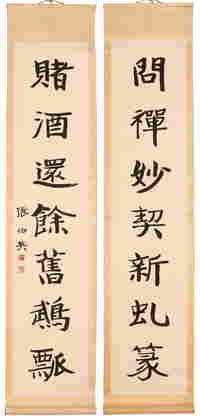 問禪妙契新虬篆
賭酒還餘舊鷫瓢
張伯英